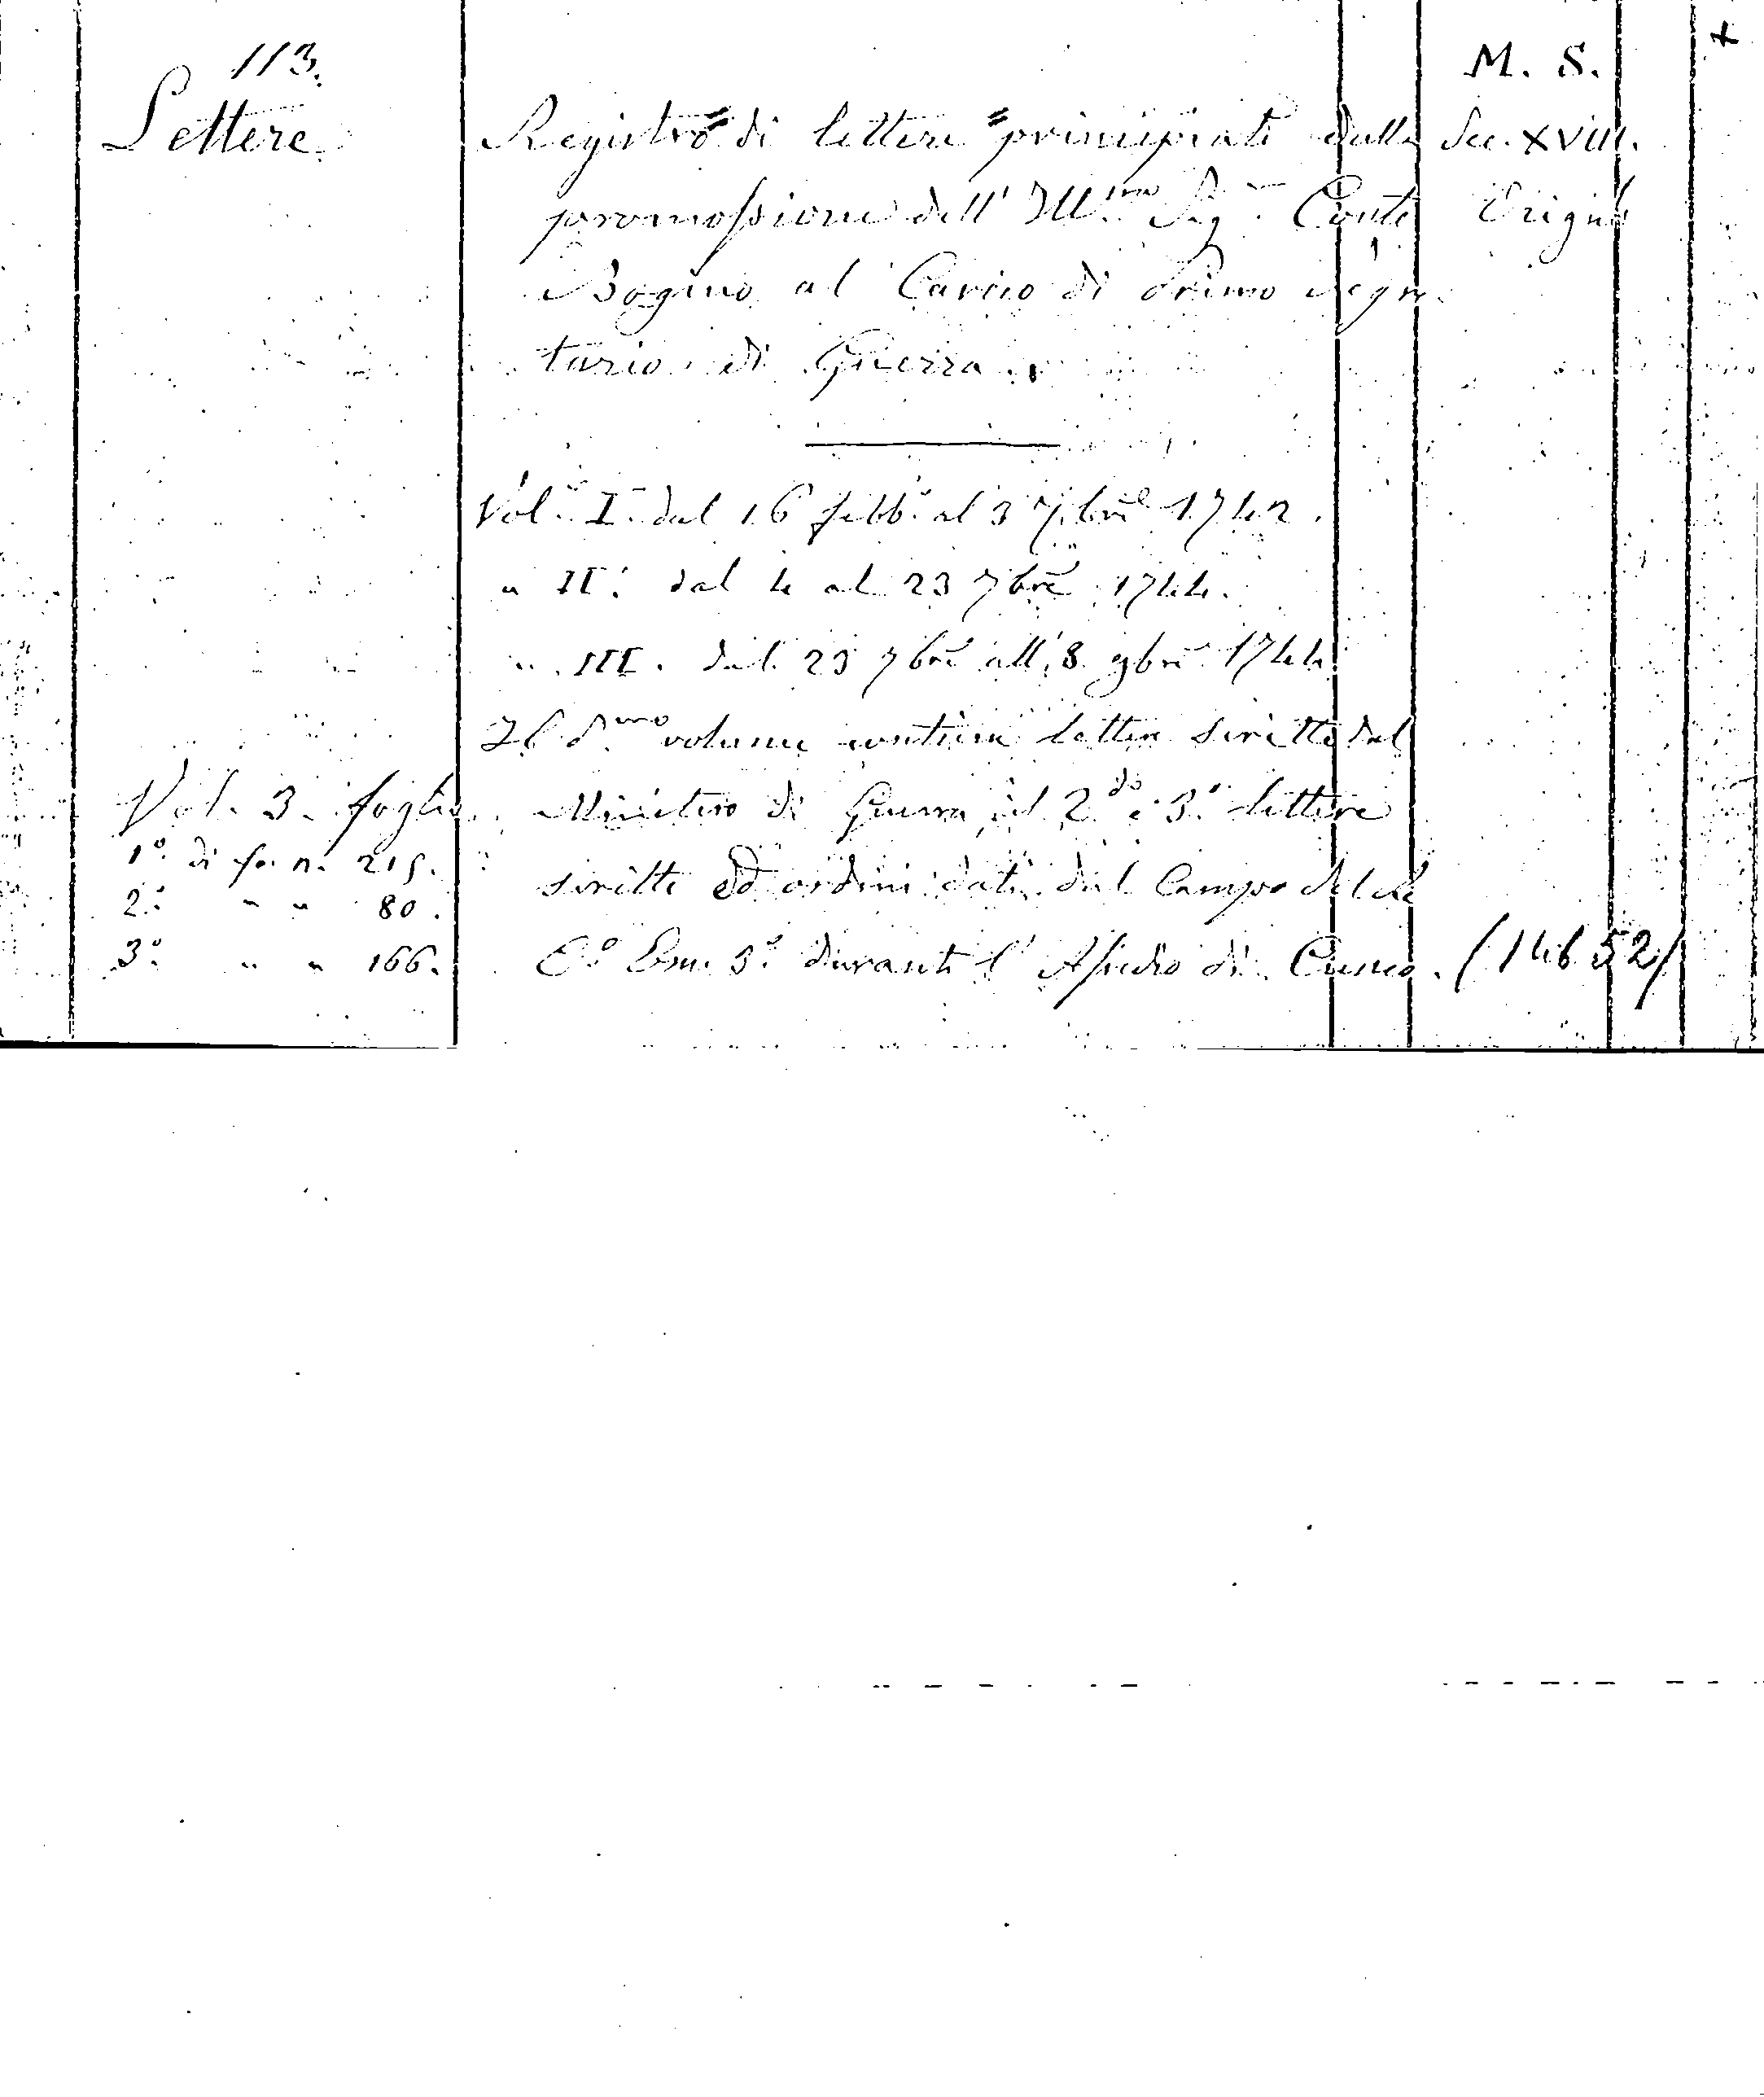 113.
Lettere
Vol. 3. foglio
1º. di fo. n. 215.
2.º " " 80.
3º. " " 166.
Registro di lettere principiati dalla
promossione dell' Ill.mo Sig.r Conte
Bogino al Carico di Primo Segre-
tario di Guerra.
Vol. I. dal 16 febb.º al 3 7bre 1742.
" II. dal 4 al 23 7bre 1744.
" III. dal 23 7bre all' 8 9bre 1744
Il P.mo volume contiene lettere scritte dal
Ministro di Guerra, il 2.do e 3.º lettere
scritte ed ordini dati dal Campo del Re
C.º Em. 3.º durante l'Assedio di Cuneo.
M. S.
Sec. XVIII.
Orign
(14652)